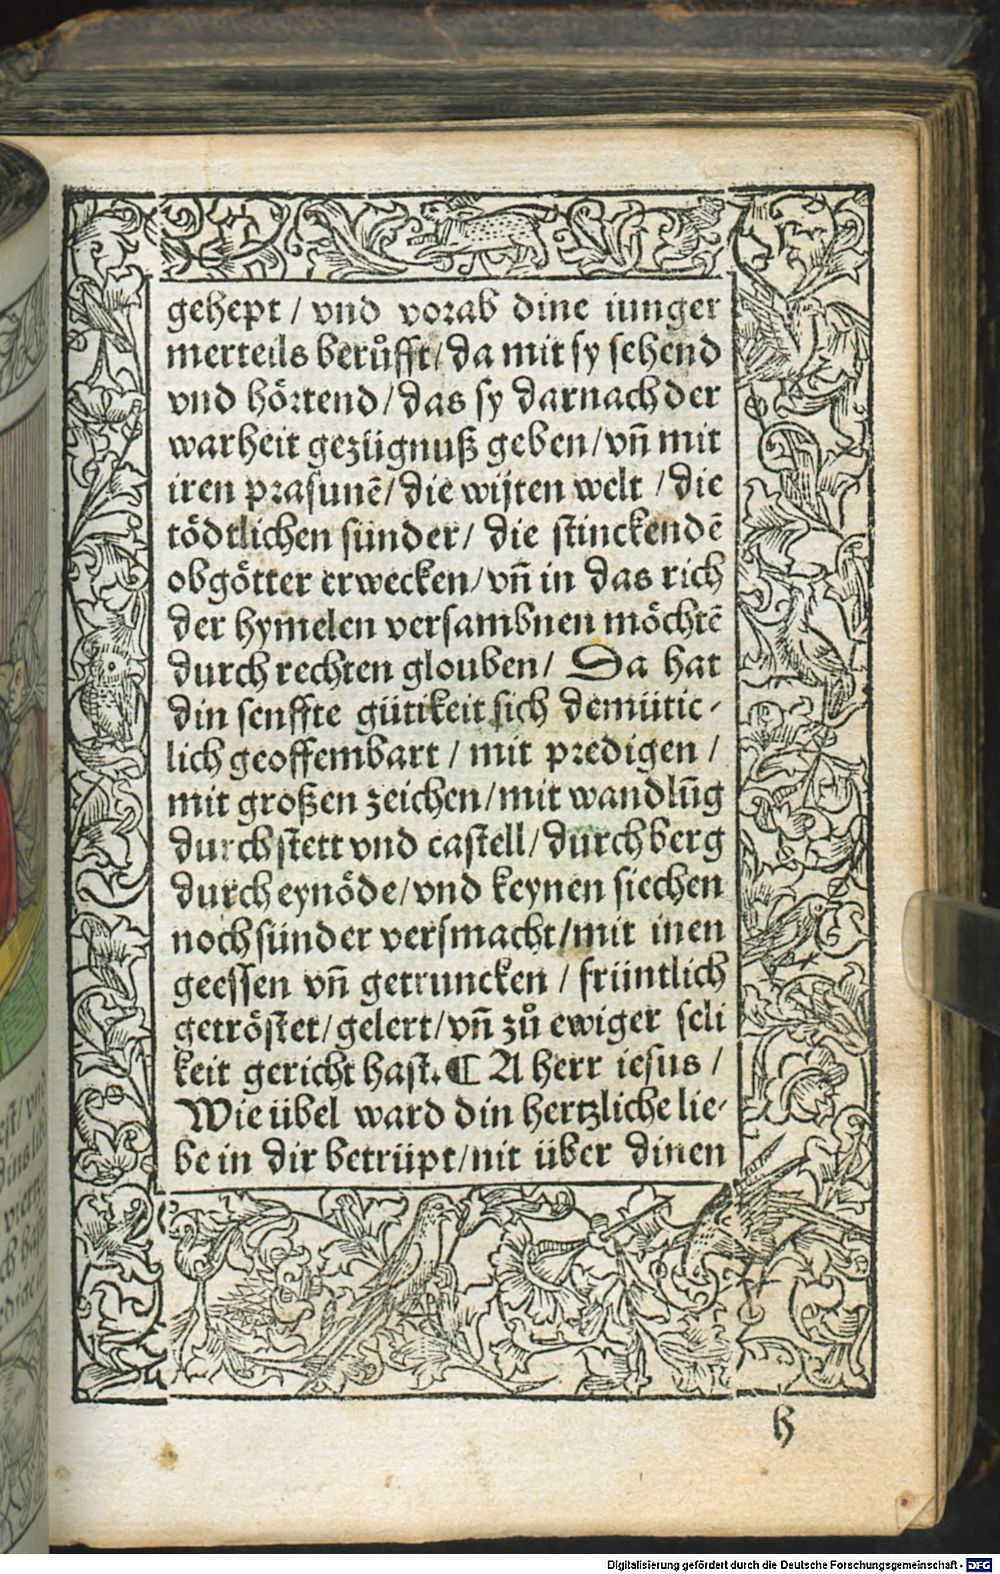 gehept / vnd vorab dine iunger
merteils berůfft / da mit sy sehend
vnd hörtend / das sy darnach der
warheit gezügnuß geben / vn̄ mit
iren prasunē / die wijten welt / die
tödtlichen sünder / die stinckendē
obgötter erwecken / vn̄ in das rich
der hymelen versambnen möchtē
durch rechten glouben / Da hat
din senffte gütikeit sich demütic-
lich geoffembart / mit predigen /
mit großen zeichen / mit wandlūg
durch stett vnd castell / durch berg
durch eynöde / vnd keynen siechen
noch sünder versmacht / mit inen
geessen vn̄ getruncken / früntlich
getröstet / gelert / vn̄ zů ewiger seli
keit gericht hast. ¶ A herr iesus /
Wie übel ward din hertzliche lie-
be in dir betrüpt / nit über dinen
h
Digitalisierung gefördert durch die Deutsche Forschungsgemeinschaft - DFG